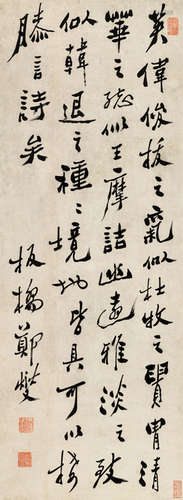 英偉俊拔之氣似杜牧之貴胄清
華之態似王摩詰幽遠雅淡之致
似韓退之種々境地皆具可以接
膝言詩矣
板橋鄭燮